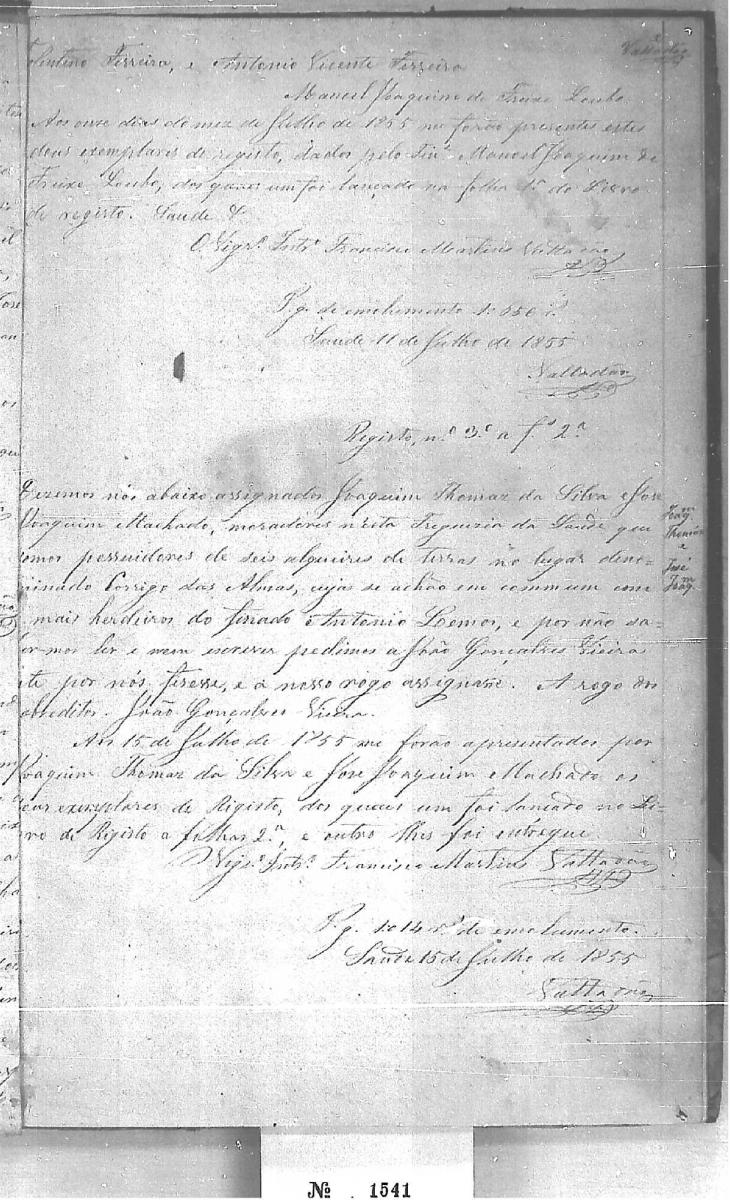 Valladão
Ferreira, e Antonio Vicente Ferreira
Manoel Joaquim de Freixe Loubo
Aos onze dias do mez de Julho de 1855 me forão presentes estes
dous exemplares de registo, dados pelo Manoel Joaquim de
Freixe Loubo, dos quaes um foi lançado na folha 1ª do Livro
de registo. Saude &
O Vigrº Intº Francisco Martins Valladão
Pg. de emolumento 1:650 rs
Saude 11 de Julho de 1855
Valladão
Registo, nº 3º a fª 2ª
Dizemos nós abaixo assignados Joaquim Thomaz da Silva e José
Joaquim Machado, moradores nesta Freguezia da Saude que
somos possuidores de seis alqueires de terras no lugar deno-
minado Corrigo das Almas, cujas se achão em commum com
mais herdeiros do finado Antonio Lemos, e por não sa-
bermos ler e nem escrever pedimos a João Gonçalves Vieira
este por nós fizesse, e a nosso rogo assignasse. A rogo dos
João Gonçalves Vieira.
Aos 15 de Julho de 1855 me forão apresentados por
Joaquim Thomaz da Silva e José Joaquim Machado os
dous exemplares de Registo, dos quaes um foi lançado no Li-
vro de Registo a folhas 2ª, e outro lhes foi entregue.
Vigrº Intº Francisco Martins Valladão
Pg. 1:014 rs de emolumento.
Saude 15 de Julho de 1855
Valladão
Joaqm
Thomáz
e
José
Joaqm
Nº 1541